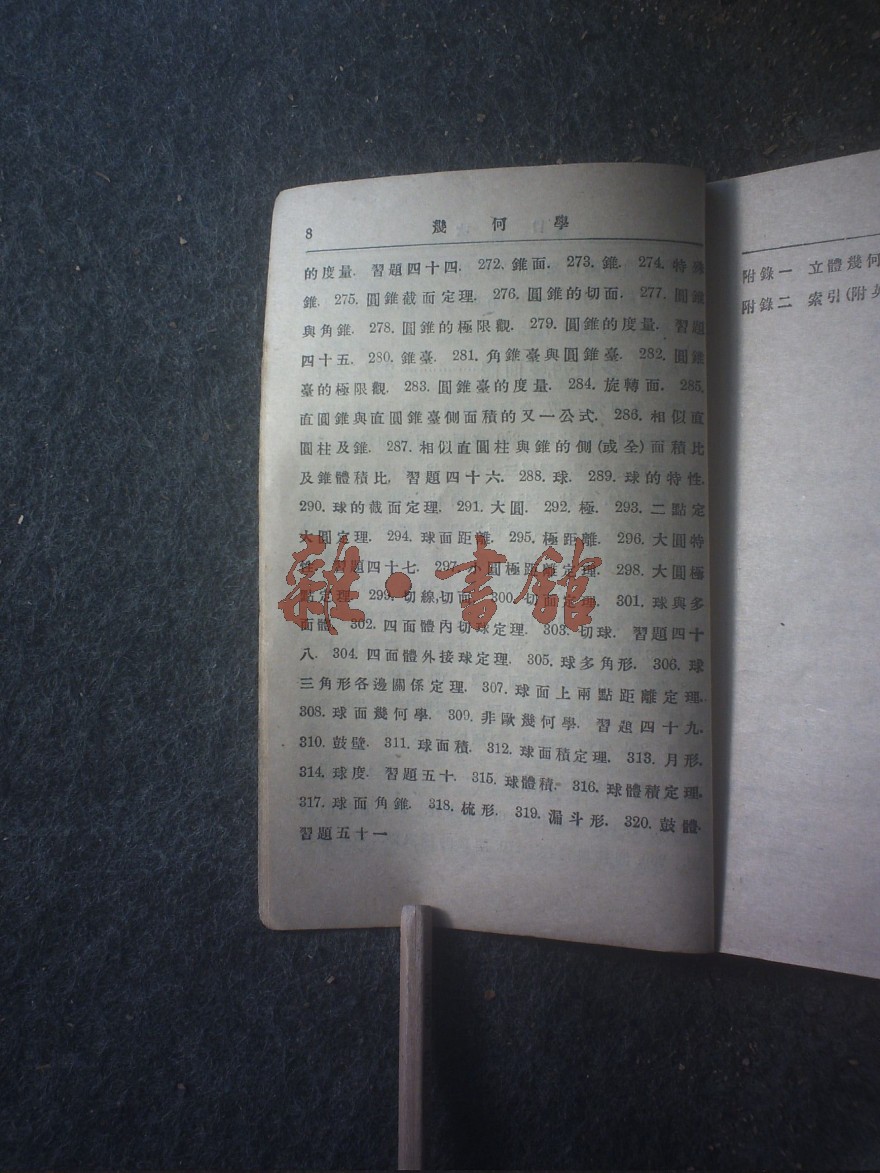 8 幾何學
的度量. 習題四十四. 272. 錐面. 273. 錐. 274. 特殊
錐. 275. 圓錐截面定理. 276. 圓錐的切面. 277. 圓錐
與角錐. 278. 圓錐的極限觀. 279. 圓錐的度量. 習題
四十五. 280. 錐臺. 281. 角錐臺與圓錐臺. 282. 圓錐
臺的極限觀. 283. 圓錐臺的度量. 284. 旋轉面. 285.
直圓錐與直圓錐臺側面積的又一公式. 286. 相似直
圓柱及錐. 287. 相似直圓柱與錐的側(或全)面積比
及錐體積比. 習題四十六. 288. 球. 289. 球的特性.
290. 球的截面定理. 291. 大圓. 292. 極. 293. 二點定
大圓定理. 294. 球面距離. 295. 極距離. 296. 大圓特
性. 習題四十七. 297. 小圓極距離定理. 298. 大圓極
點定理. 299. 切線,切面. 300. 切面定理. 301. 球與多
面體. 302. 四面體內切球定理. 303. 切球. 習題四十
八. 304. 四面體外接球定理. 305. 球多角形. 306. 球
三角形各邊關係定理. 307. 球面上兩點距離定理.
308. 球面幾何學. 309. 非歐幾何學. 習題四十九.
310. 鼓壁. 311. 球面積. 312. 球面積定理. 313. 月形.
314. 球度. 習題五十. 315. 球體積. 316. 球體積定理.
317. 球面角錐. 318. 梳形. 319. 漏斗形. 320. 鼓體.
習題五十一
附錄一 立體幾何
附錄二 索引(附英
雜·書館